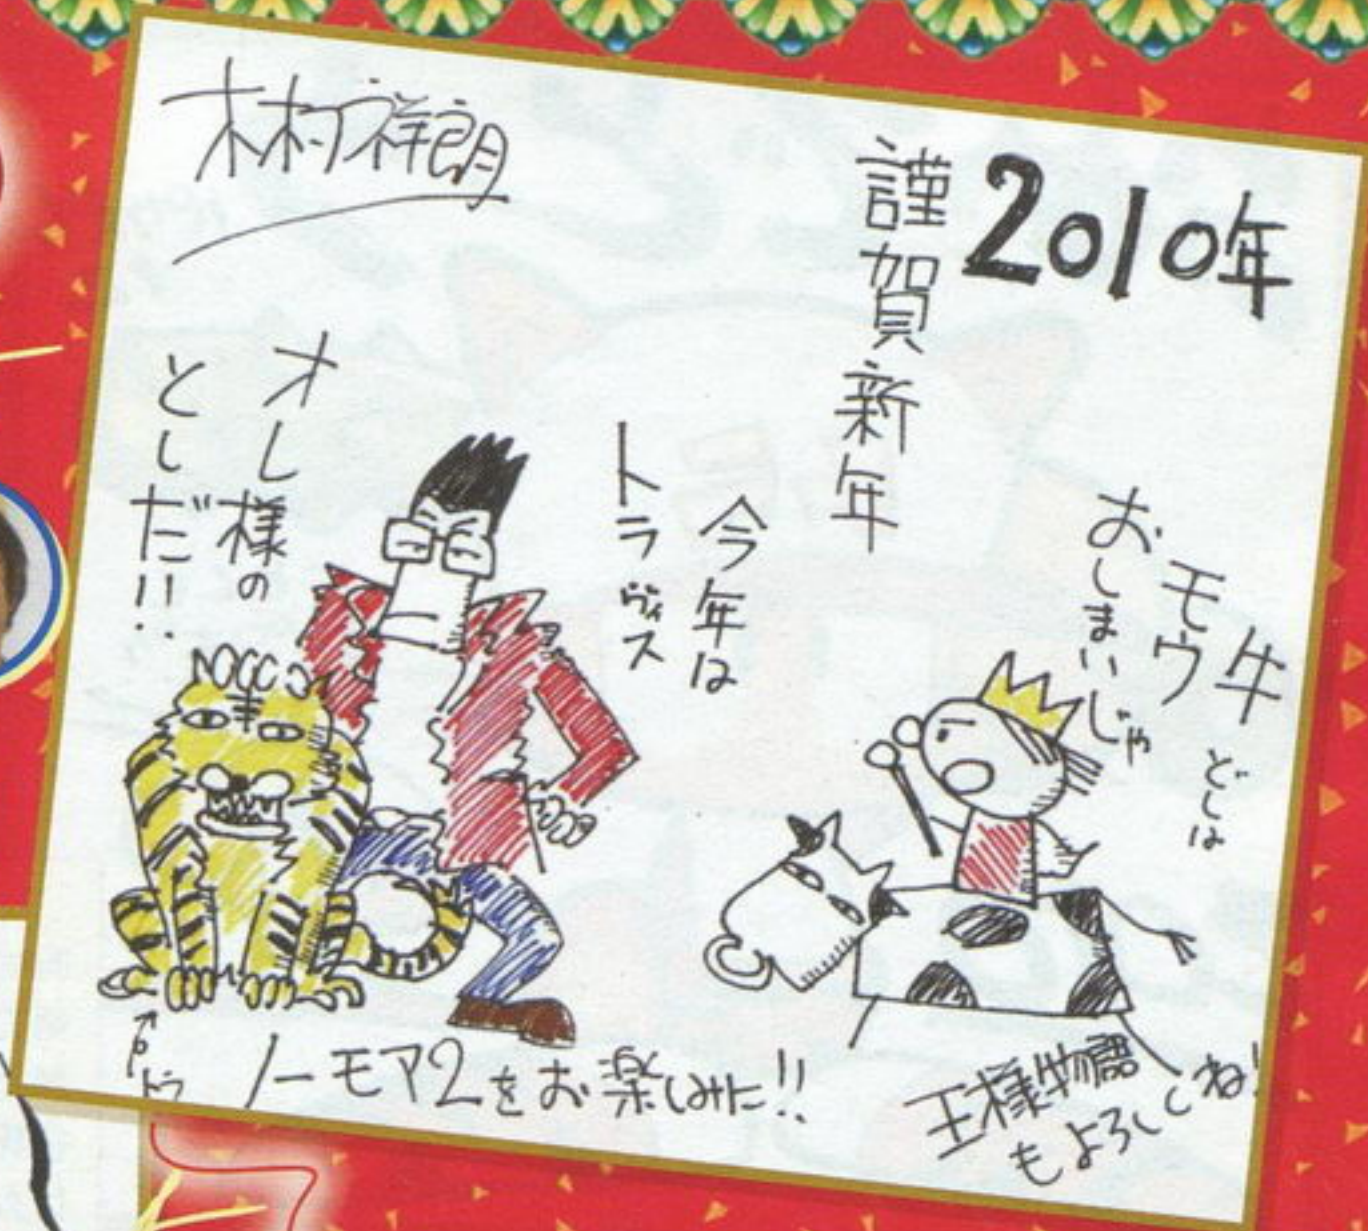 2010年
謹賀新年
木村祥朗
牛どしは
モウ
おしまいじゃ
今年は
トラヴィス
オレ様の
としだ!!
トラ
ノーモア2をお楽しみに!!
王様物語
もよろしくね!